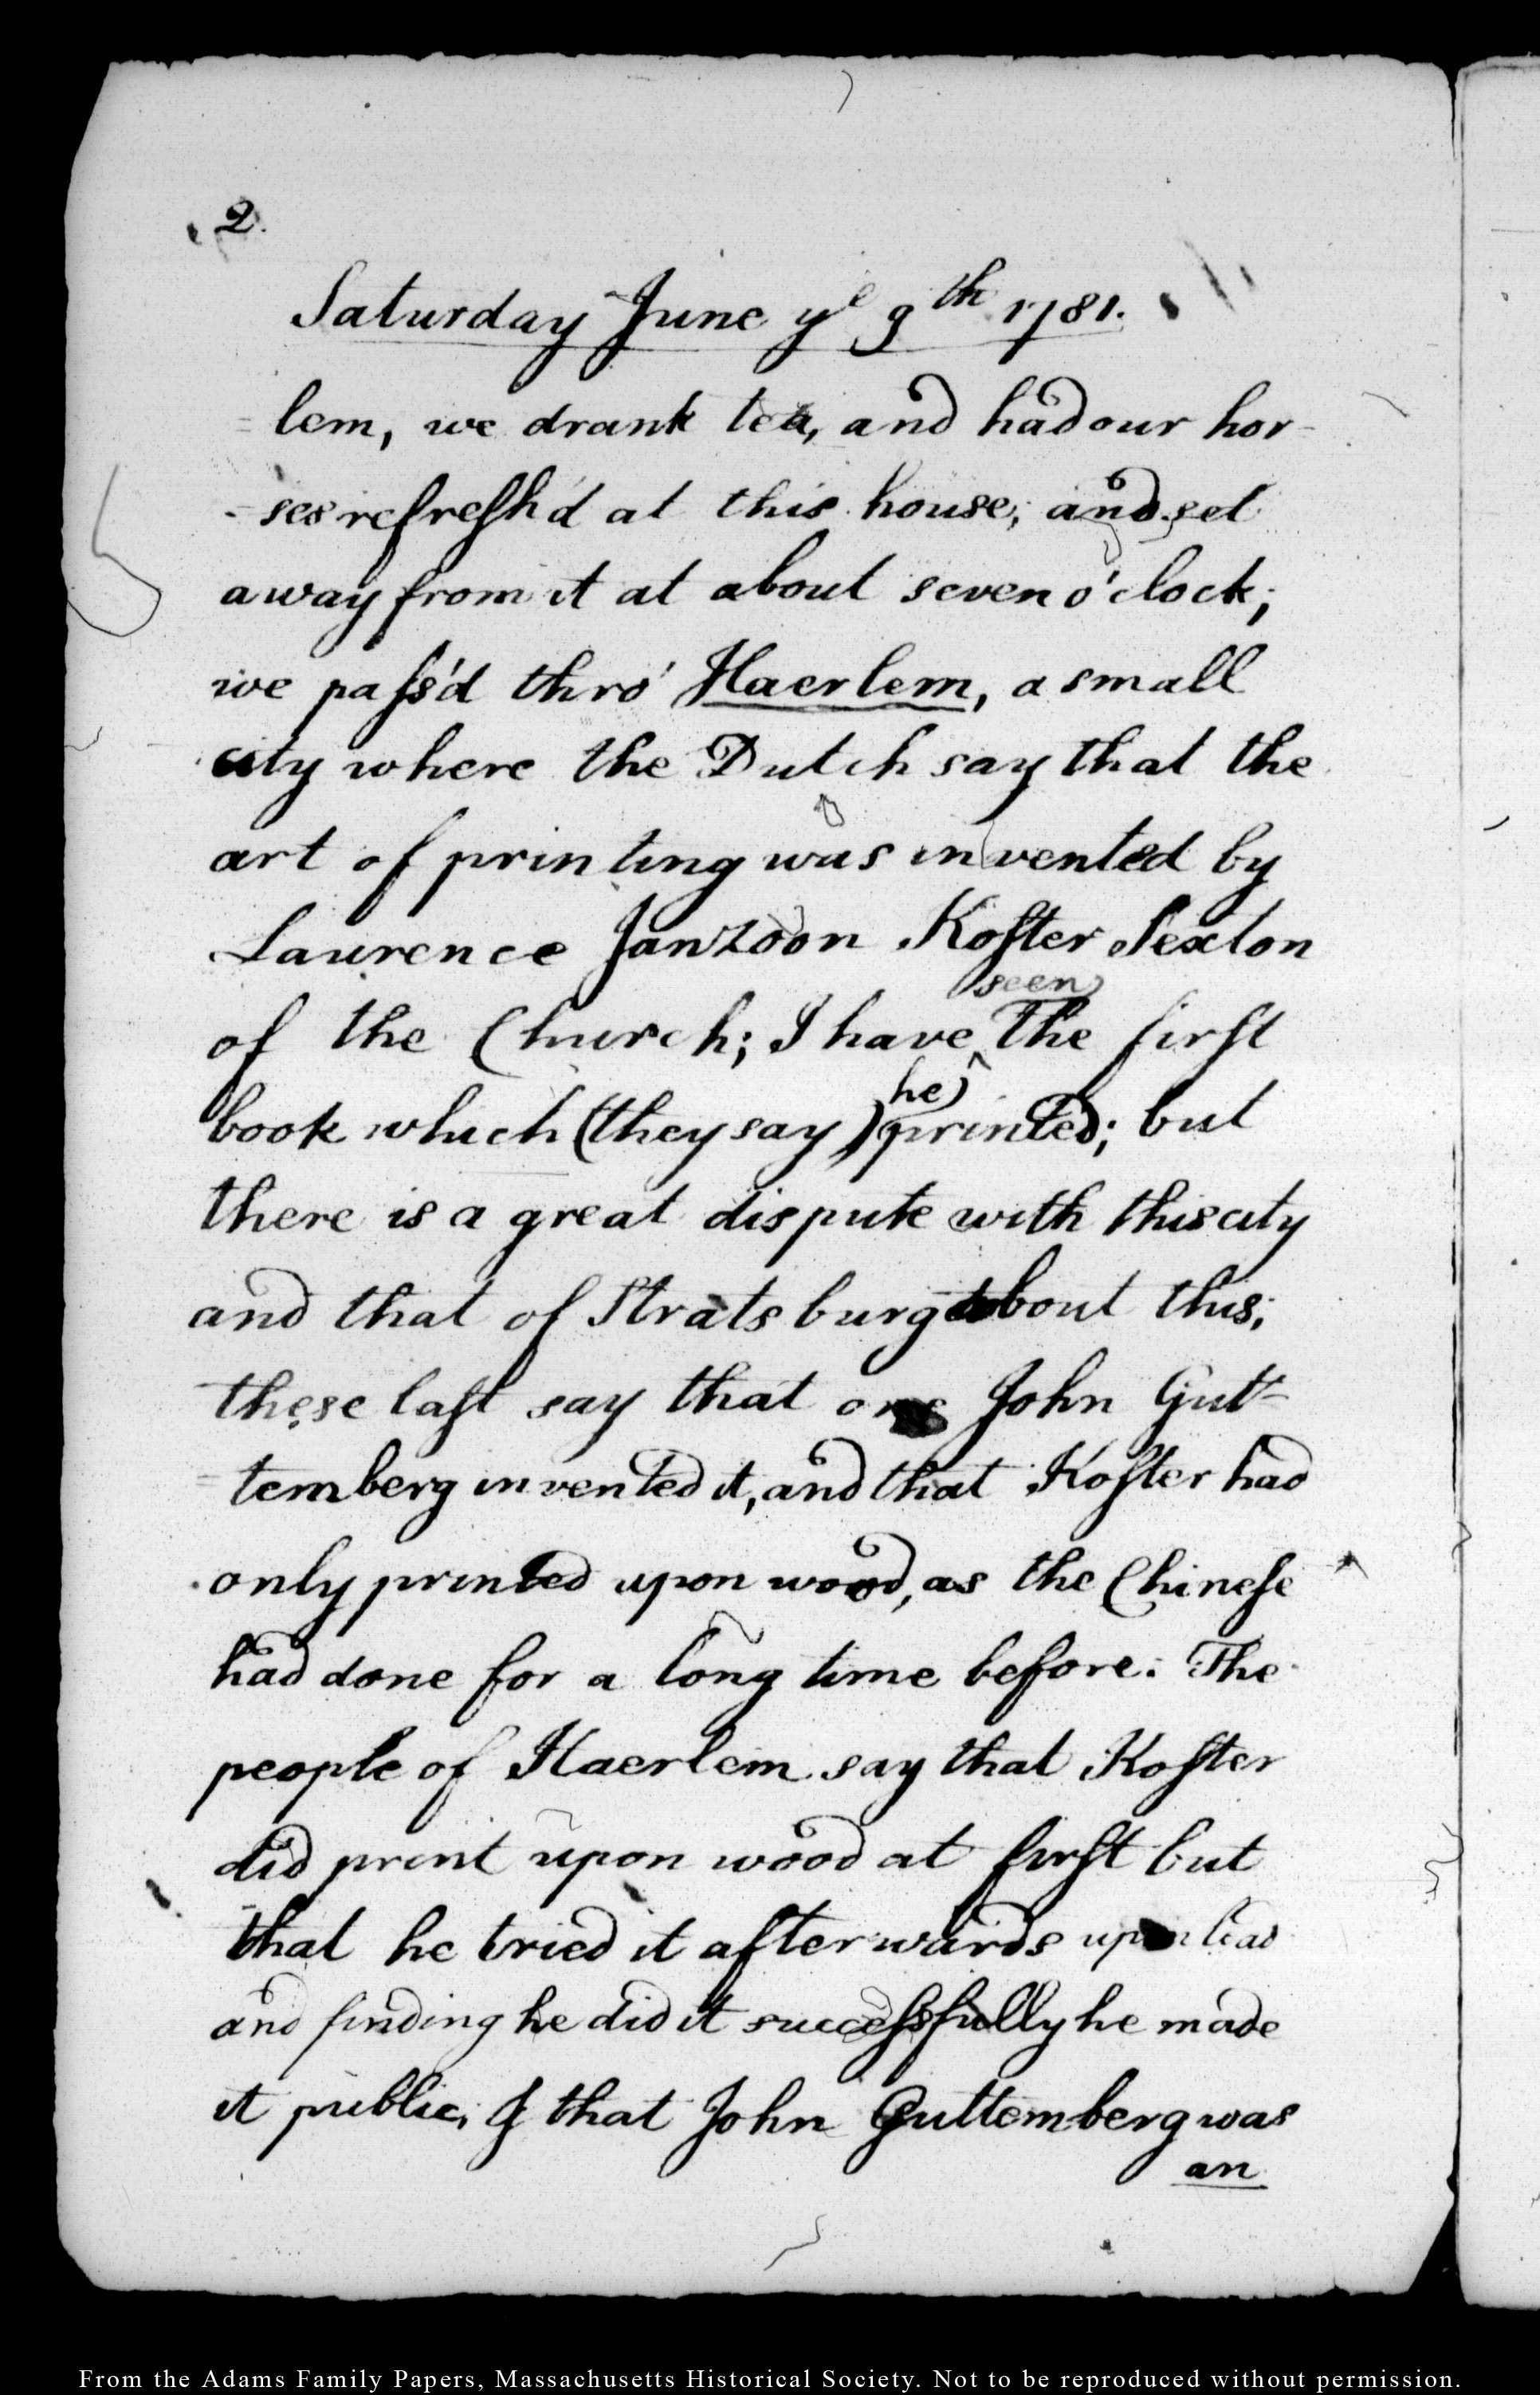 2.
Saturday June ye 9th 1781.
=lem, we drank tea, and had our hor-
-ses refresh'd at this house; and set
away from it at about seven o'clock;
we pass'd thro' Haerlem, a small
city where the Dutch say that the
art of printing was invented by
Laurence Janzoon Koster Sexton
seen
of the Church; I have ^ The first
he
book which (they say) printed; but
there is a great dispute with this city
and that of Stratsburg about this;
these last say that one John Gut=
=temberg invented it, and that Koster had
only printed upon wood, as the Chinese
had done for a long time before. The
people of Haerlem say that Koster
did print upon wood at first but
that he tried it afterwards upon lead
and finding he did it successfully he made
it public, & that John Guttemberg was
an
From the Adams Family Papers, Massachusetts Historical Society. Not to be reproduced without permission.